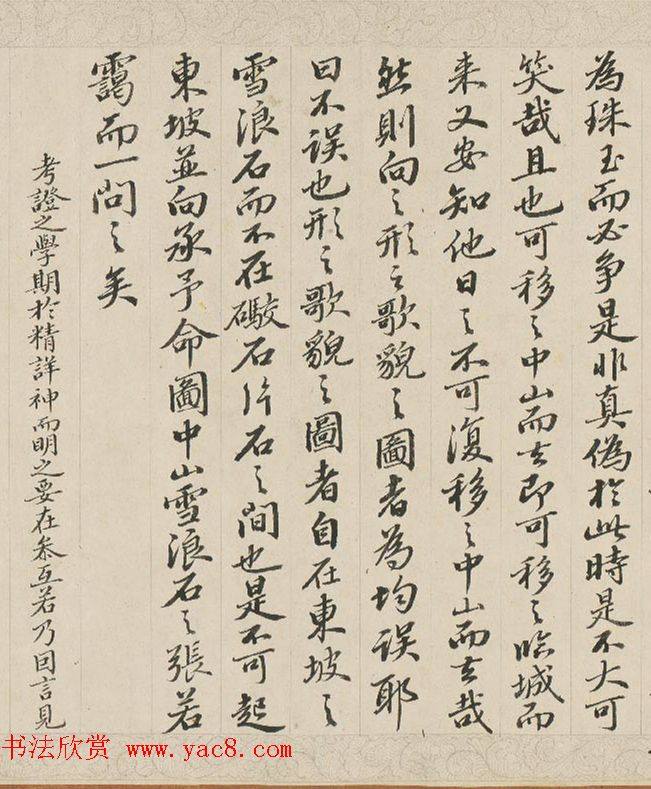 為珠玉而必争是非真偽於此時是不大可
笑哉且也可移之中山而去即可移之臨城而
来又安知他日之不可復移之中山而去哉
然則向之形之歌貌之圖者為均誤耶
曰不誤也形之歌貌之圖者自在東坡之
雪浪石而不在礮石片石之間也是不可起
東坡並向承予命圖中山雪浪石之張若
靄而一問之矣
考證之學期於精詳神而明之要在叅互若乃因言見
书法欣赏 www.yac8.com